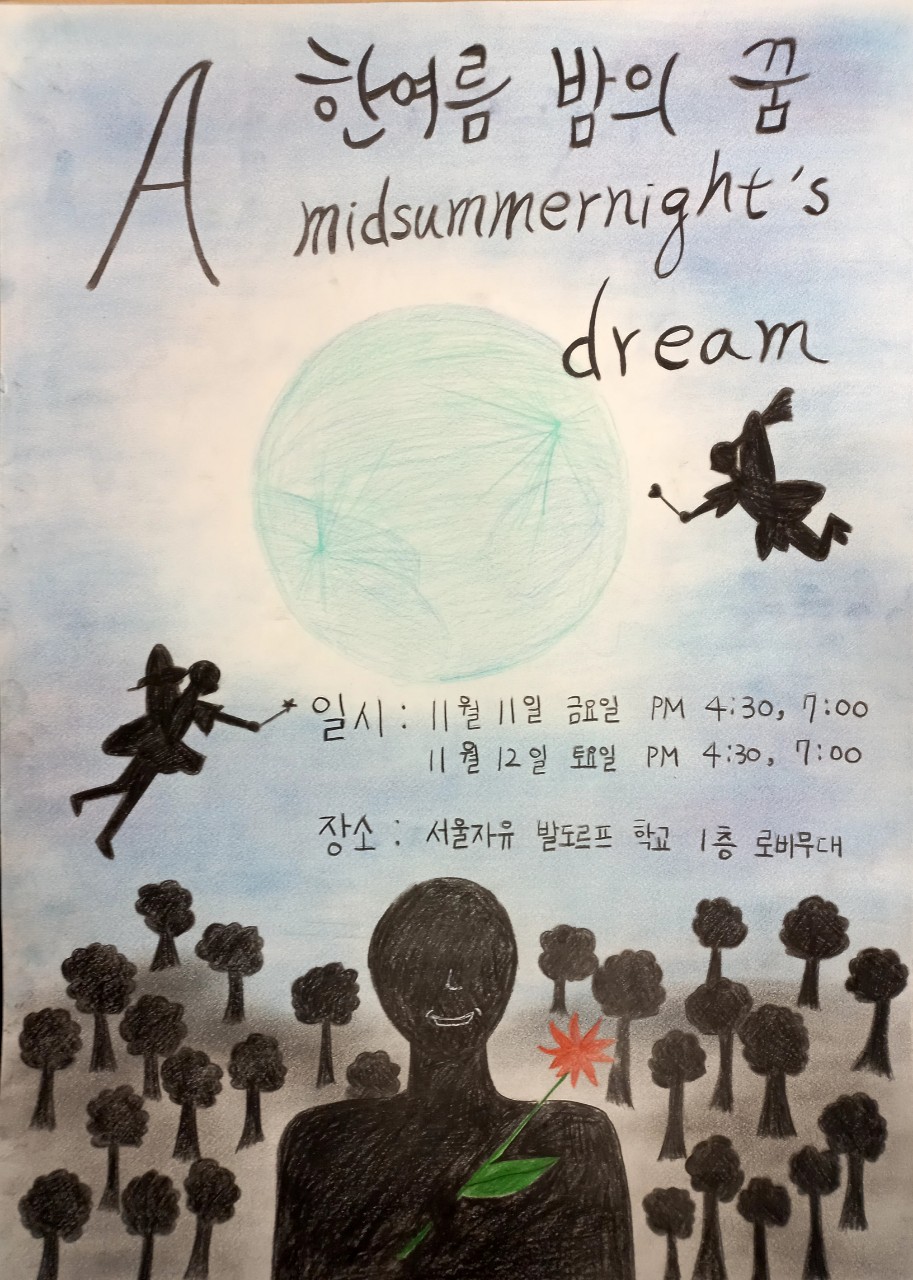 A 한여름 밤의 꿈
midsummernight's
dream
일시 : 11월 11일 금요일 PM 4:30, 7:00
11월 12일 토요일 PM 4:30, 7:00
장소 : 서울자유 발도르프 학교 1층 로비무대